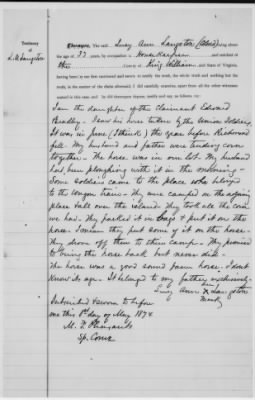 Testimony
of
L. A. Langston
The said Lucy Ann Langston (Colored) being about
the age of 33 years, by occupation a House keeper and resident of
this County of King William, and State of Virginia,
having been by me first cautioned and sworn to testify the truth, the whole truth and nothing but the
truth, in the matter of the claim aforesaid, I did carefully examine, apart from all the other witnesses
named in this case, and he did thereupon depose, testify and say as follows, viz:
I am the daughter of the claimant Edward
Bradby. I saw his horse taken by the Union Soldiers.
It was in June (I think) the year before Richmond
fell. My husband and father were tending corn
together. The horse was in our lot. My husband
had been ploughing with it in the morning.
Some soldiers came to the place who belonged
to the wagon train. The army camped on the adjoining
place all over the island. They took all the corn
we had. They packed it in bags & put it on the
horse. I mean they put some of it on the horse.
They drove off then to their camp. They promised
to bring the horse back but never did.
The horse was a good sound farm horse. I dont
know its age. It belonged to my father exclusively.
Lucy Ann her x mark Langston
Subscribed & sworn to before
me this 8th day of May 1874
Sp. Comr